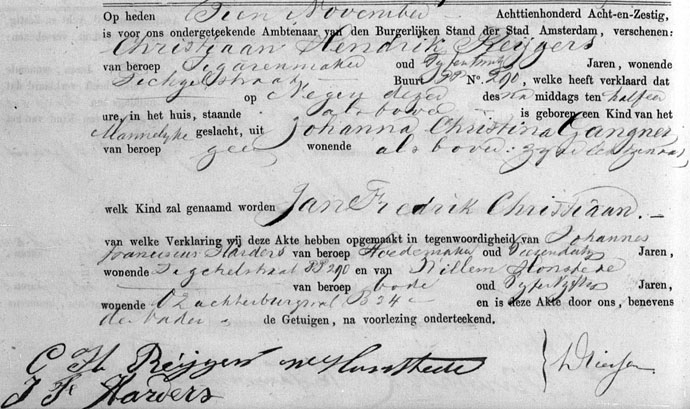 Op heden Tien November Achttienhonderd Acht-en-Zestig,
is voor ons ondergeteekende Ambtenaar van den Burgerlijken Stand der Stad Amsterdam, verschenen:
Christiaan Hendrik Reijgers
van beroep Sigarenmaker oud Jaren, wonende
Tichgelstraat Buurt PP No. 290, welke heeft verklaard dat
op Negen dezer des na middags ten half
ure, in het huis, staande als boven is geboren een Kind van het
Mannelijke geslacht, uit Johanna Christina Gangner
van beroep geen wonende als boven zijne Echtgenoot
welk Kind zal genaamd worden Jan Fredrik Christiaan.
van welke Verklaring wij deze Akte hebben opgemaakt in tegenwoordigheid van Johannes
Franciscus Harders van beroep Hoedemaker oud Jaren,
wonende Tichelstraat PP 290 en van Willem Honstede
van beroep bode oud Jaren,
wonende OZ achterburgwal B 24 en is deze Akte door ons, benevens
de vader de Getuigen, na voorlezing onderteekend.
C H Reijgers W Honstede
J F Harders